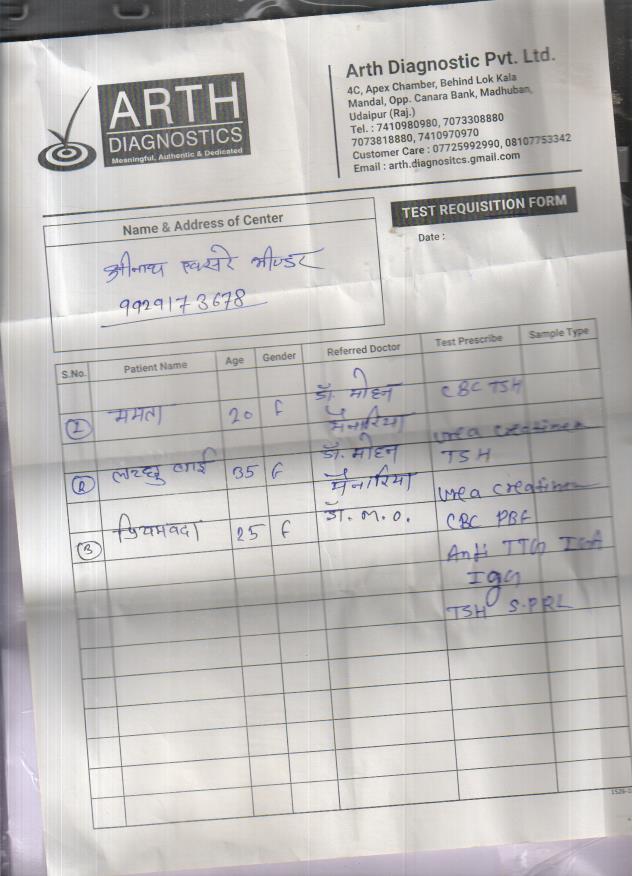 ARTH
DIAGNOSTICS
Meaningful, Authentic & Dedicated
Arth Diagnostic Pvt. Ltd.
4C, Apex Chamber, Behind Lok Kala
Mandal, Opp. Canara Bank, Madhuban,
Udaipur (Raj.)
Tel. : 7410980980, 7073308880
7073818880, 7410970970
Customer Care : 07725992990, 08107753342
Email : arth.diagnositcs.gmail.com
TEST REQUISITION FORM
Date :
Name & Address of Center
श्रीनाथ एक्सरे भीण्डर
9929173678
S.No. Patient Name Age Gender Referred Doctor Test Prescribe Sample Type
1 ममता 20 F डॉ. मोहन मेनारिया CBC TSH
urea creatinen
2 बाई 35 F डॉ. मोहन मेनारिया TSH
urea creatinen
3 प्रियमवदा 25 F डॉ. M.O. CBC PBF
Anti TTG IGA
IgG
TSH S.PRL